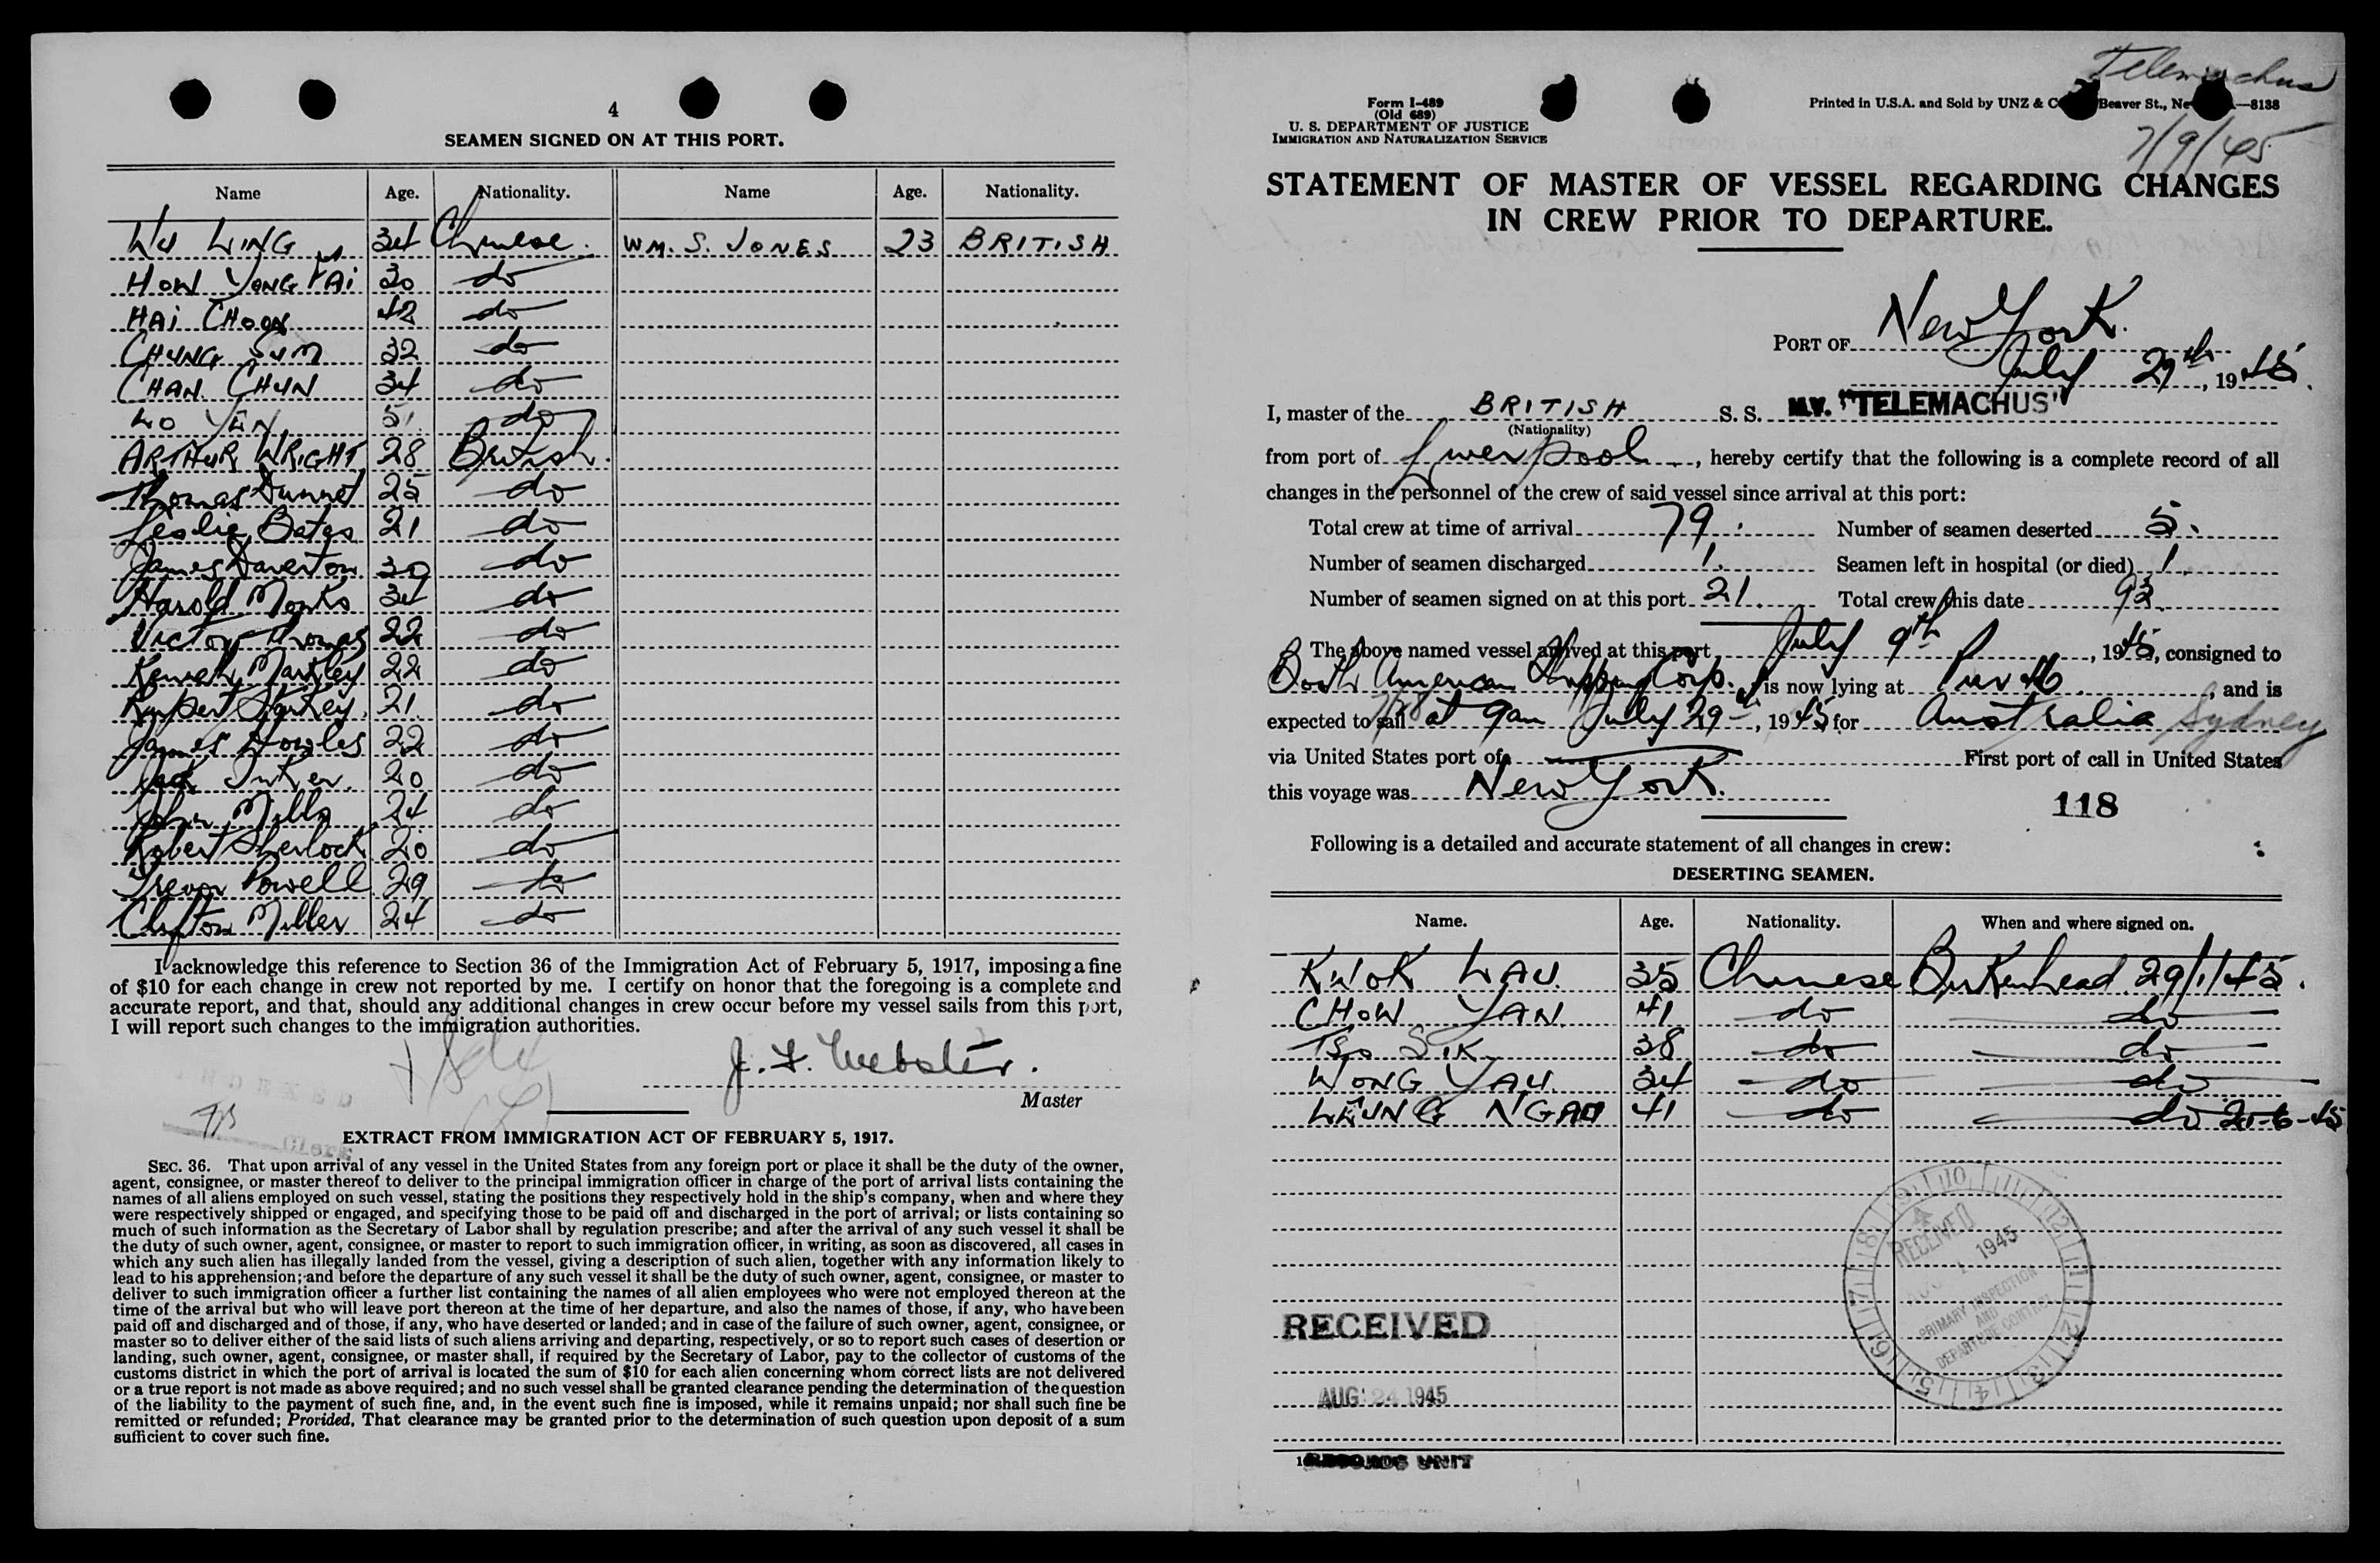 4
SEAMEN SIGNED ON AT THIS PORT.
Name Age. Nationality. Name Age. Nationality.
WU LING 34 Chinese. WM. S. JONES 23 BRITISH
HOW YONG TAI 30 do
HAI CHOON 42 do
CHUNG SUM 32 do
CHAN CHUN 34 do
LO YEN 51 do
ARTHUR WRIGHT 28 British.
Thomas Dunnet 25 do
Leslie Bates 21 do
James Daverton 30 do
Harold Monks 34 do
Victor Thomas 22 do
Kenneth Markley 22 do
Rupert Starkey. 21 do
James Howles 22 do
Jack 20 do
John Mills 24 do
Robert Sherlock 20 do
Trevor Powell 29 do
Clifton Miller 24 do
I acknowledge this reference to Section 36 of the Immigration Act of February 5, 1917, imposing a fine
of $10 for each change in crew not reported by me. I certify on honor that the foregoing is a complete and
accurate report, and that, should any additional changes in crew occur before my vessel sails from this port,
I will report such changes to the immigration authorities.
J. F. Webster.
Master
EXTRACT FROM IMMIGRATION ACT OF FEBRUARY 5, 1917.
SEC. 36. That upon arrival of any vessel in the United States from any foreign port or place it shall be the duty of the owner,
agent, consignee, or master thereof to deliver to the principal immigration officer in charge of the port of arrival lists containing the
names of all aliens employed on such vessel, stating the positions they respectively hold in the ship's company, when and where they
were respectively shipped or engaged, and specifying those to be paid off and discharged in the port of arrival; or lists containing so
much of such information as the Secretary of Labor shall by regulation prescribe; and after the arrival of any such vessel it shall be
the duty of such owner, agent, consignee, or master to report to such immigration officer, in writing, as soon as discovered, all cases in
which any such alien has illegally landed from the vessel, giving a description of such alien, together with any information likely to
lead to his apprehension; and before the departure of any such vessel it shall be the duty of such owner, agent, consignee, or master to
deliver to such immigration officer a further list containing the names of all alien employees who were not employed thereon at the
time of the arrival but who will leave port thereon at the time of her departure, and also the names of those, if any, who have been
paid off and discharged and of those, if any, who have deserted or landed; and in case of the failure of such owner, agent, consignee, or
master so to deliver either of the said lists of such aliens arriving and departing, respectively, or so to report such cases of desertion or
landing, such owner, agent, consignee, or master shall, if required by the Secretary of Labor, pay to the collector of customs of the
customs district in which the port of arrival is located the sum of $10 for each alien concerning whom correct lists are not delivered
or a true report is not made as above required; and no such vessel shall be granted clearance pending the determination of the question
of the liability to the payment of such fine, and, in the event such fine is imposed, while it remains unpaid; nor shall such fine be
remitted or refunded; Provided, That clearance may be granted prior to the determination of such question upon deposit of a sum
sufficient to cover such fine.
Telemachus
Form I-489
(Old 689)
U. S. DEPARTMENT OF JUSTICE
IMMIGRATION AND NATURALIZATION SERVICE
Printed in U.S.A. and Sold by UNZ & C Beaver St., Ne —8138
7/9/45
STATEMENT OF MASTER OF VESSEL REGARDING CHANGES
IN CREW PRIOR TO DEPARTURE.
PORT OF New York.
July 29th, 1945.
I, master of the BRITISH S. S. MV. "TELEMACHUS"
(Nationality)
from port of Liverpool, hereby certify that the following is a complete record of all
changes in the personnel of the crew of said vessel since arrival at this port:
Total crew at time of arrival 79. Number of seamen deserted 5.
Number of seamen discharged 1. Seamen left in hospital (or died) 1.
Number of seamen signed on at this port 21. Total crew this date 93.
The above named vessel arrived at this port July 9th, 1945, consigned to
Booth American Shipping Corp. is now lying at Pier 46, and is
expected to sail 7/28 at 9am July 29th, 1945 for Australia Sydney
via United States port of First port of call in United States
this voyage was New York.
118
Following is a detailed and accurate statement of all changes in crew:
DESERTING SEAMEN.
Name. Age. Nationality. When and where signed on.
KWOK LAU. 35 Chinese Birkenhead 29/1/45.
CHOW YAN. 41 do do
TSO SIK 38 do do
WONG YAU. 34 do do
LEUNG NGAO 41 do do 21-6-45
RECEIVED
1945
PRIMARY INSPECTION
AND
DEPARTURE CONTROL
RECEIVED
AUG 24 1945
RECORDS UNIT